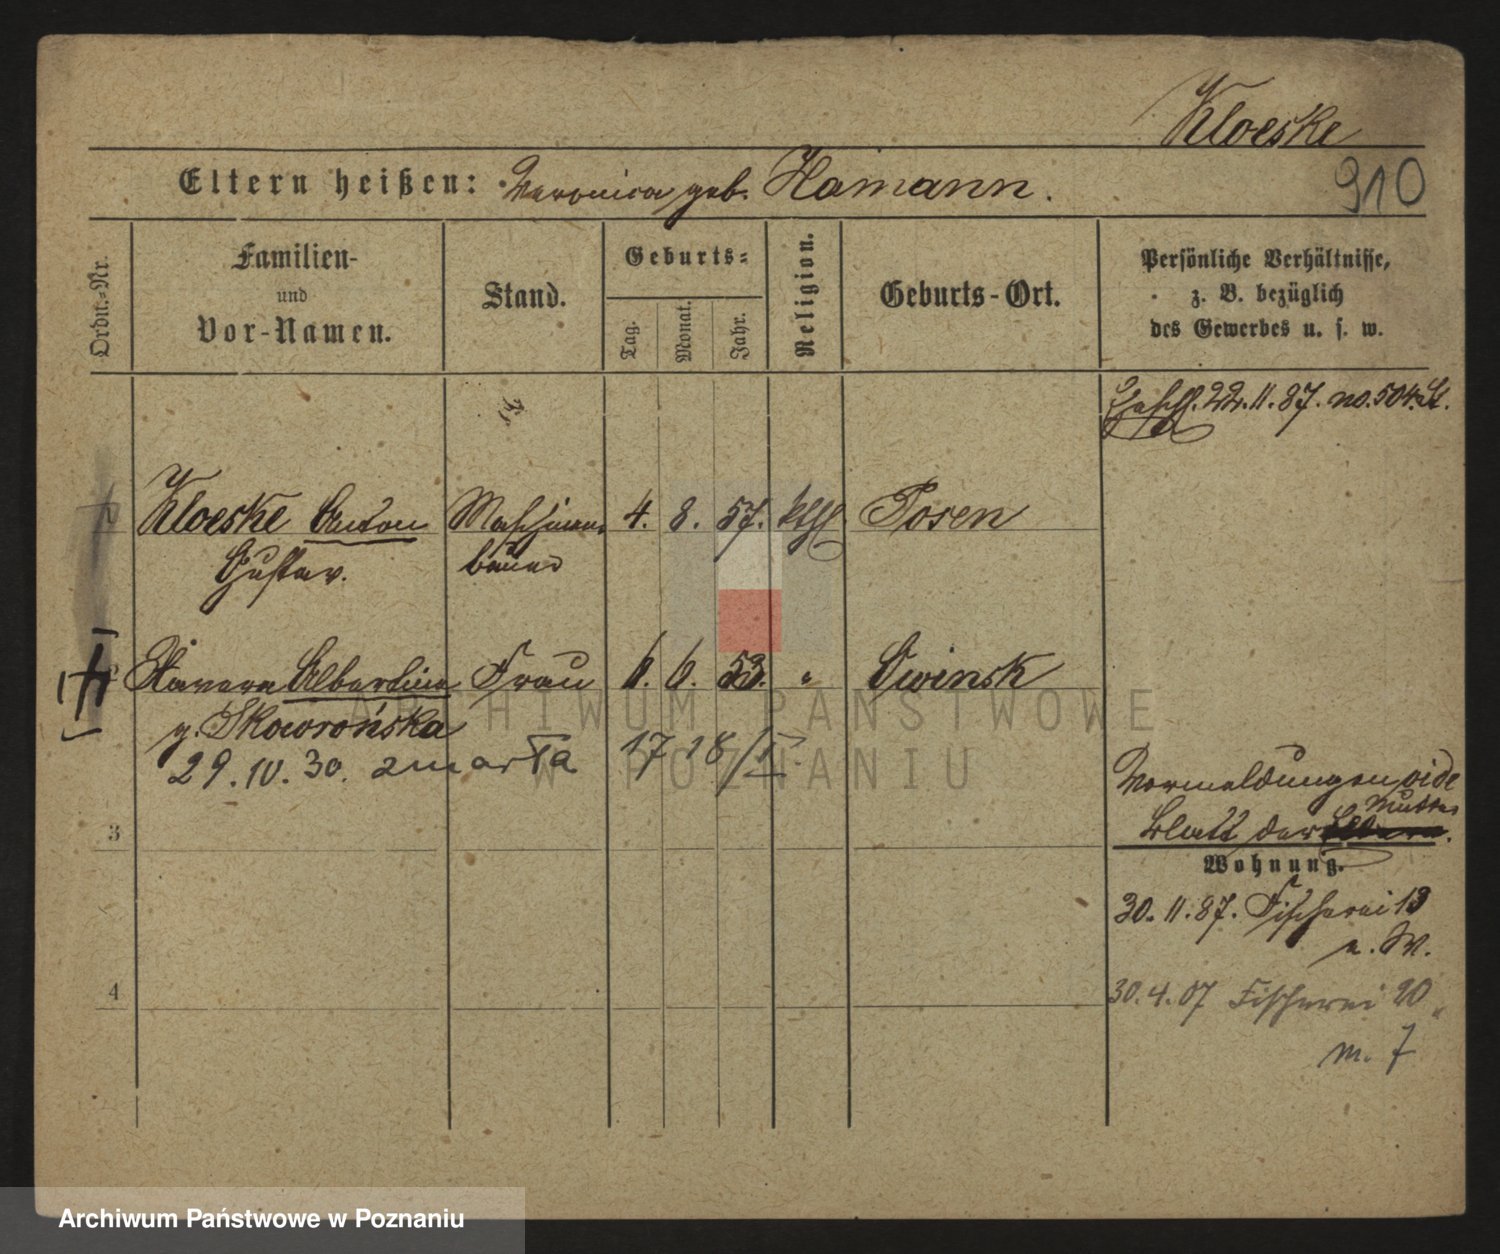 Kloeske
Eltern heißen: Veronica geb. Hamann.
910
Ordn.-Nr.
Familien-
und
Vor-Namen.
Stand.
Geburts-
Tag.
Monat.
Jahr.
Religion.
Geburts-Ort.
Persönliche Verhältnisse,
z. B. bezüglich
des Gewerbes u. s. w.
22.11.87. no. 504. St.
1 Kloeske Anton Maschinen- 4. 8. 57. kthl. Posen
Gustav. bauer
2 Xavera Albertine Frau 6. 6. 53. " Owinsk
g. Skowrońska
29. IV. 30. zmarła 1718/I
Vermeldungen vide
Blatt der Mutter
3
Wohnung.
30.11.87. Fischerei 13
n. W.
4
30.4.07 Fischerei 20
m. 7
ARCHIWUM PAŃSTWOWE
W POZNANIU
Archiwum Państwowe w Poznaniu